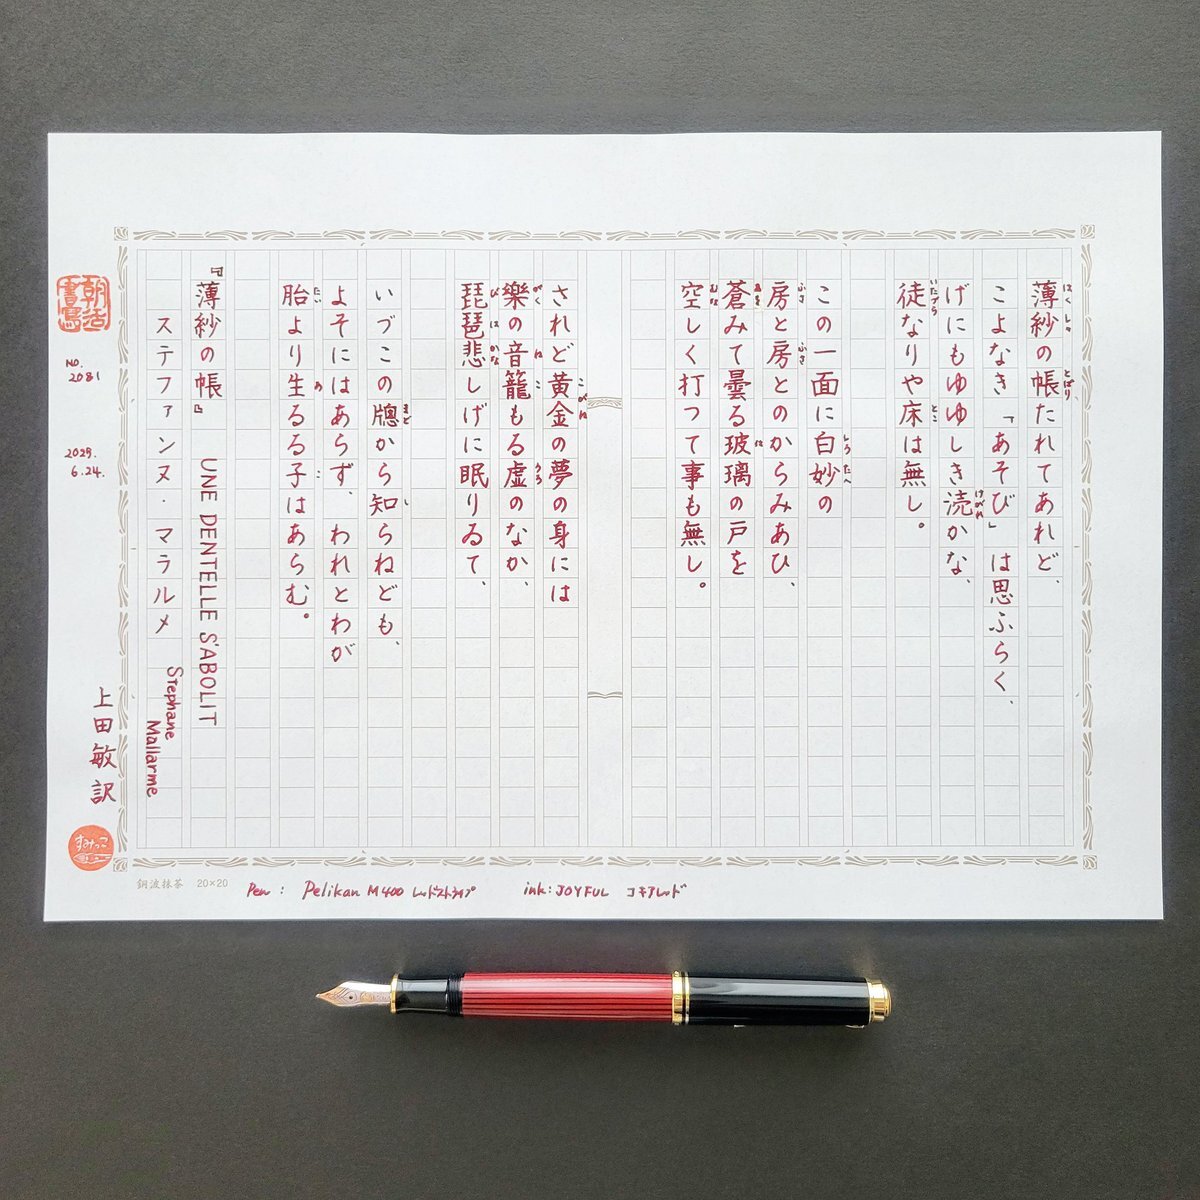 薄紗の帳たれてあれど、
はくしゃ とばり
こよなき「あそび」は思ふらく、
げにもゆゆしき涜かな、
けがれ
徒なりや床は無し。
いたづら とこ
この一面に白妙の
しろたへ
房と房とのからみあひ、
ふさ ふさ
蒼みて曇る玻璃の戸を
あを
空しく打つて事も無し。
むな
されど黄金の夢の身には
こがね
樂の音籠もる虚のなか、
がく ね こ うろ
琵琶悲しげに眠りゐて、
びは かな
いづこの牕から知らねども、
まど し
よそにはあらず、われとわが
胎より生るる子はあらむ。
たい うま こ
『薄紗の帳』 UNE DENTELLE S'ABOLIT
ステファンヌ・マラルメ Stephane Mallarme
上田敏訳
すみっこ
朝活書写
NO. 2081
2025.
6.24.
銅波抹茶 20×20
Pen: Pelikan M400 レッドストライプ ink: JOYFUL コキアレッド